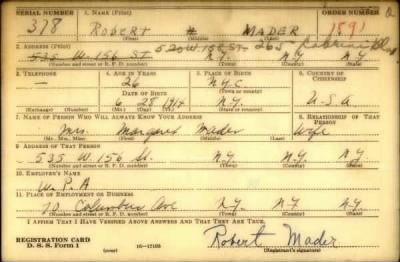 SERIAL NUMBER 1. NAME (Print) ORDER NUMBER
318 ROBERT MADER 1891
(First) (Middle) (Last)
2. ADDRESS (Print) 520 W. 158 ST. 265
535 W. 156 ST N.Y. N.Y.
(Number and street or R. F. D. number) (Town) (County) (State)
3. TELEPHONE 4. AGE IN YEARS 5. PLACE OF BIRTH 6. COUNTRY OF CITIZENSHIP
— 26 N.Y.C.
DATE OF BIRTH (Town or county)
6 28 1914 N.Y. U-S-A
(Exchange) (Number) (Mo.) (Day) (Yr.) (State or country)
7. NAME OF PERSON WHO WILL ALWAYS KNOW YOUR ADDRESS 8. RELATIONSHIP OF THAT PERSON
Mrs. Margaret Mader Wife
(Mr., Mrs., Miss) (First) (Middle) (Last)
9. ADDRESS OF THAT PERSON
535 W. 156 St. N.Y. N.Y. N.Y.
(Number and street or R. F. D. number) (Town) (County) (State)
10. EMPLOYER'S NAME
W.P.A
11. PLACE OF EMPLOYMENT OR BUSINESS
70 Columbus Ave N.Y. N.Y. N.Y.
(Number and street or R. F. D. number) (Town) (County) (State)
I AFFIRM THAT I HAVE VERIFIED ABOVE ANSWERS AND THAT THEY ARE TRUE.
REGISTRATION CARD
D. S. S. Form 1 16-17105 Robert Mader
(Registrant's signature)